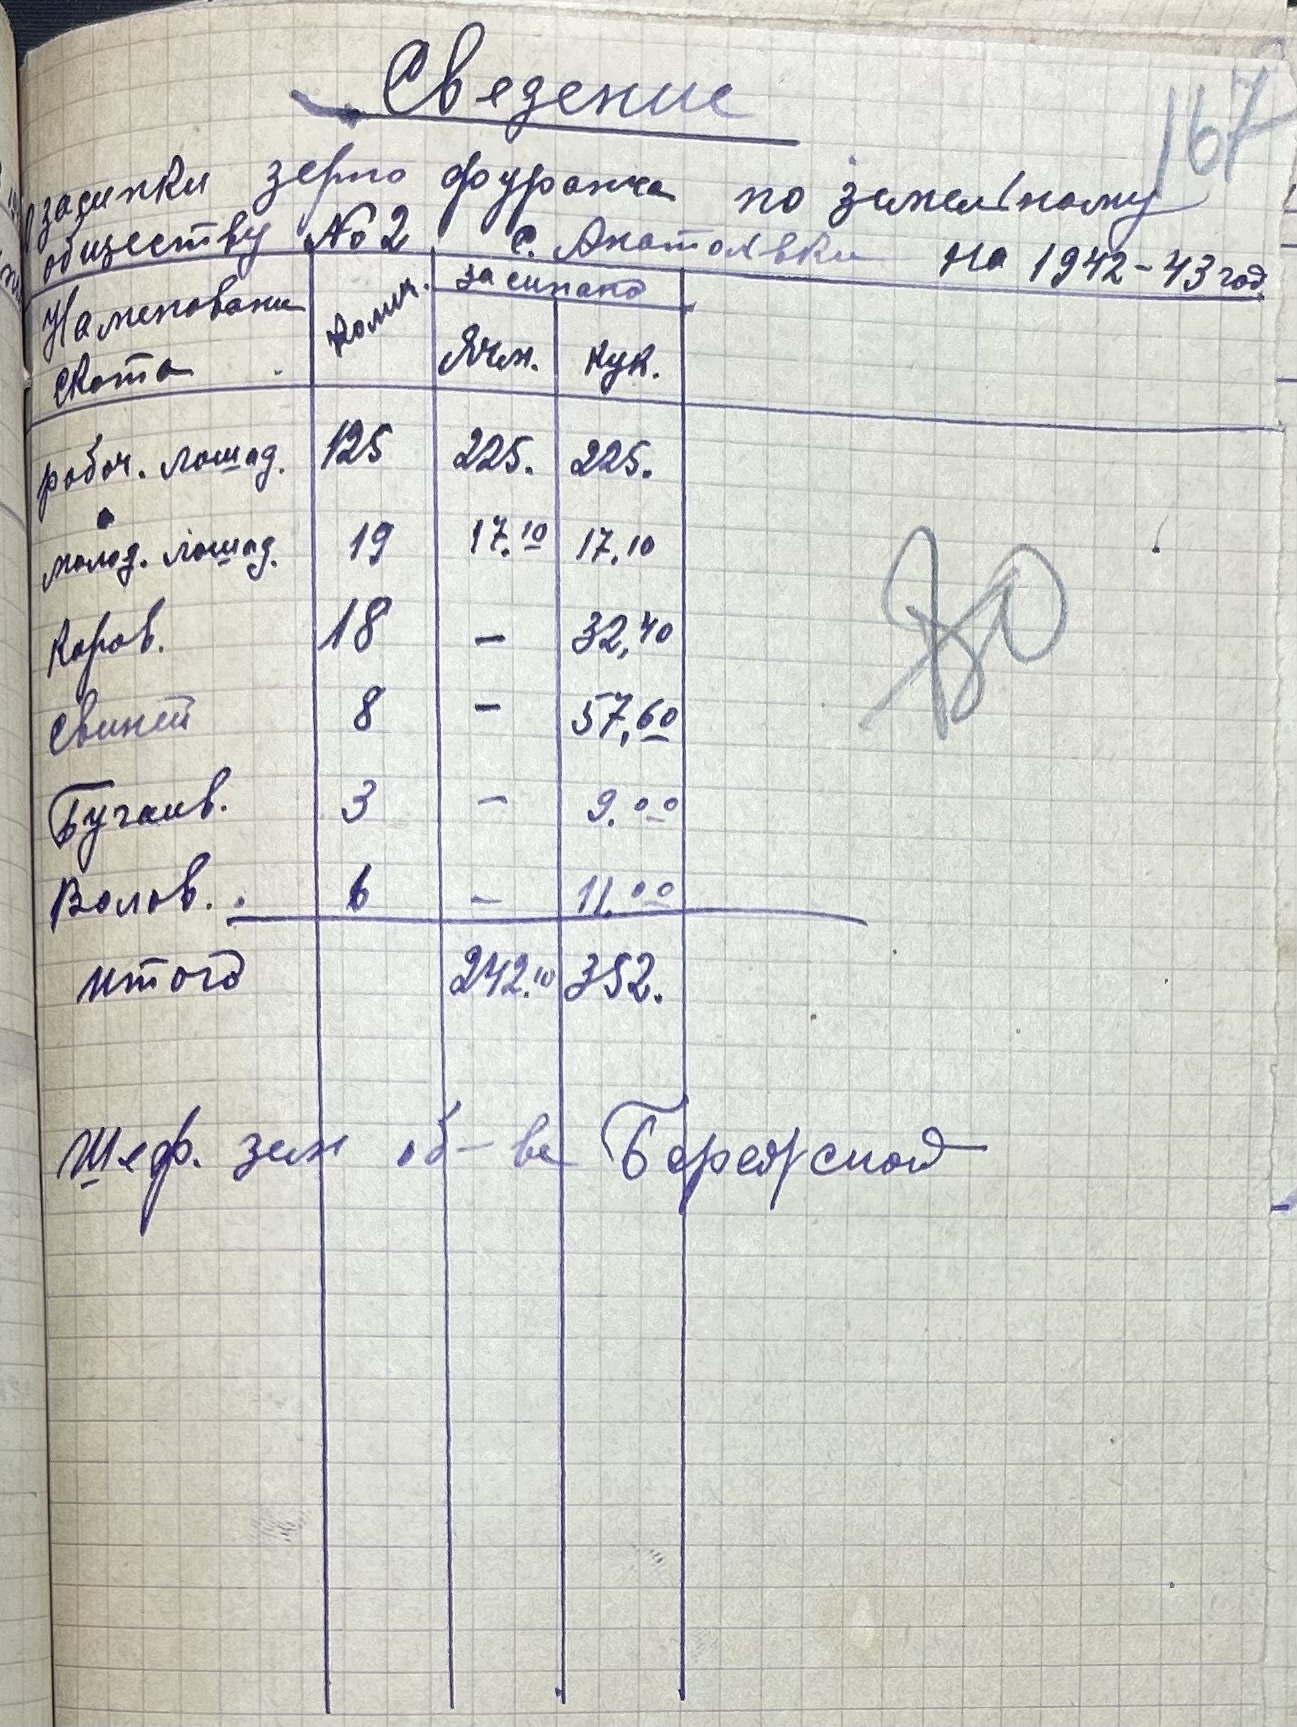 Сведение
167
засипки зерно фуража по земельному
обществу №2 с. Анатольвки на 1942-43 год
Наменовани скота Колич. засипано
Ячм. кук.
робоч. лошад. 125 225. 225.
молод. лошад. 19 17.10 17,10
Коров. 18 – 32,40
Свиней 8 – 57,60
Бугаив. 3 – 9.00
Волов. 6 – 11.00
итого 242.10 352.
Шеф. зем об-ва